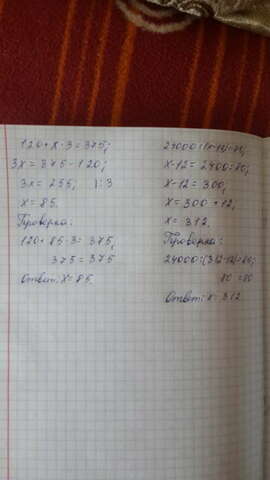 120+x·3=375;
3x=375-120;
3x=255; |:3
x=85.
Проверка:
120+85·3=375,
375=375
Ответ: x=85.
24000:(x-12)=80;
x-12=24000:80;
x-12=300;
x=300+12;
x=312.
Проверка:
24000:(312-12)=80;
80=80
Ответ: x=312